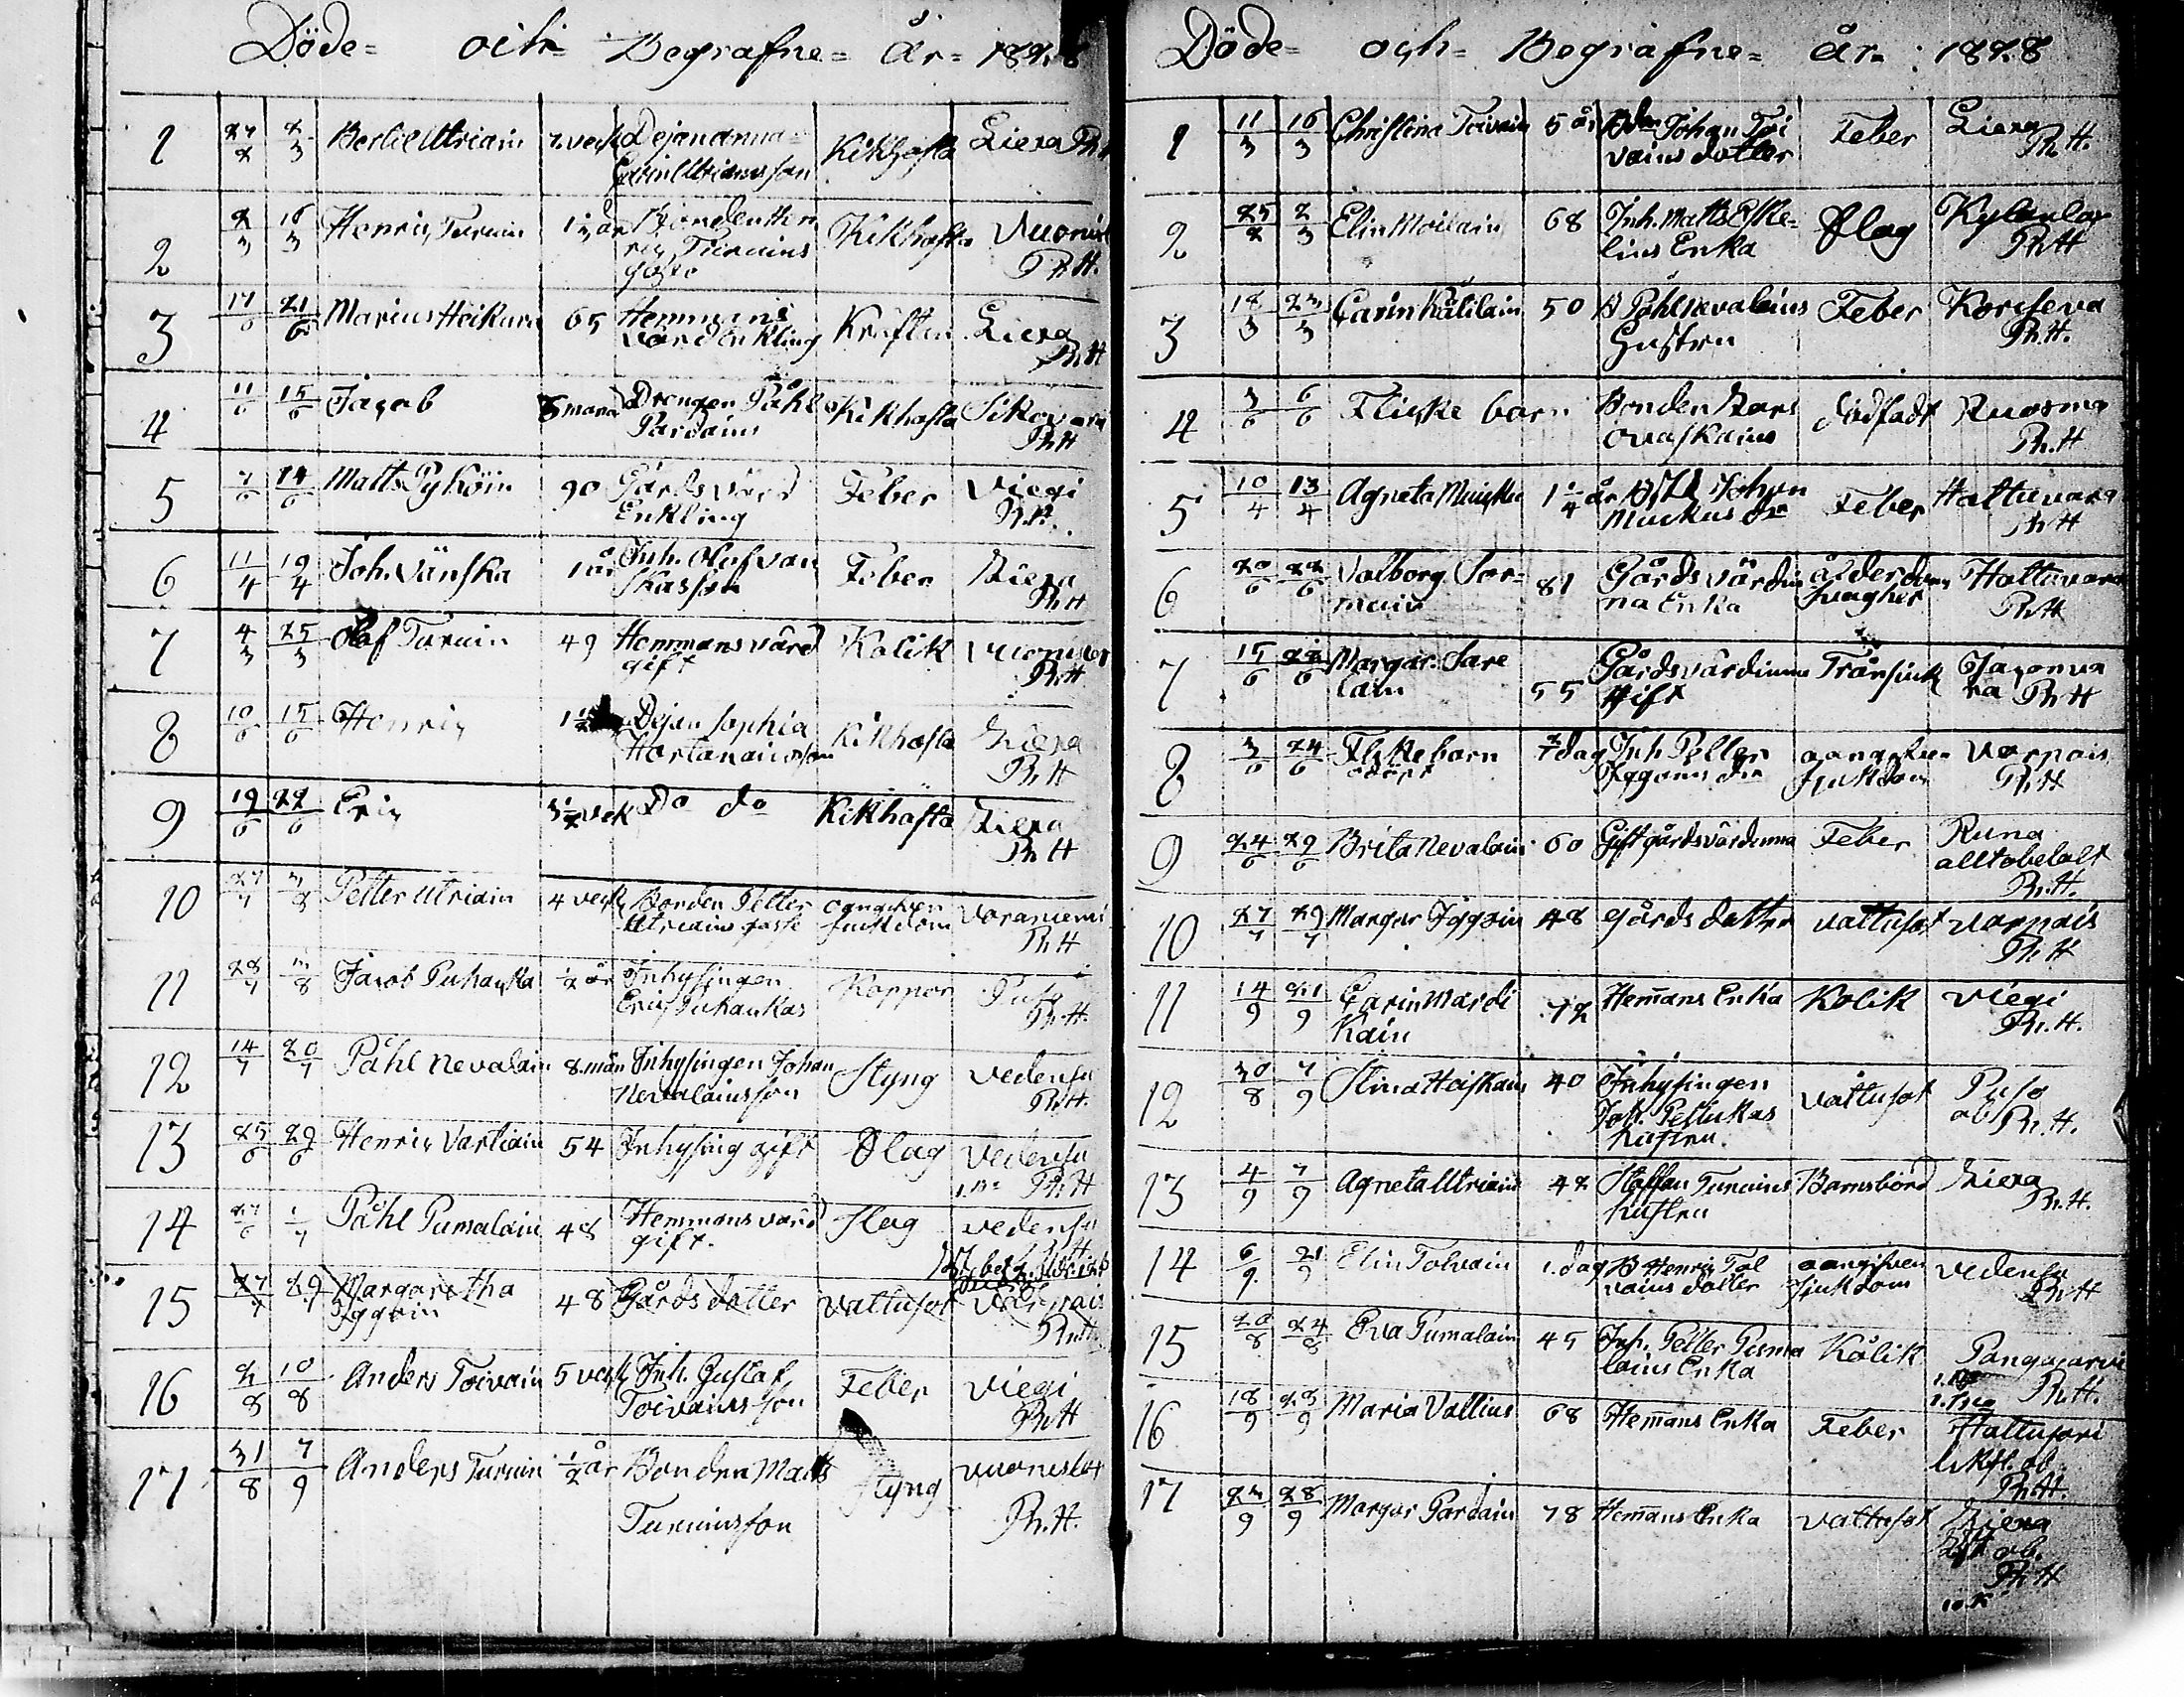 Döde= och Begrafne= år= 1828
1 27/2 2/3 Bertil Utriain 7. veck Dejan anna Carin Utriains son Kikhosta Liexa Ph
2 2/3 16/3 Henric Turuin 1½ år Bonden Hen
ric Turuins Kikhosta Vuonis
Ph.H.
3 17/6 21/6 Marcus Heikura 65 Hemmans
värd Enkling Kräftan Liexa
Ph.H
4 11/6 15/6 Jacob 3 mana Drängen Påhl
Pardains Kikhosta Sikovara
Ph.H
5 7/6 14/6 Matts Pyköin 90 Gårds värd
Enkling Feber Viegi
Ph.H.
6 11/4 19/4 Joh. Vänska 1 år Inh. Olof Van
skas son Feber Liexa
Ph.H
7 4/3 25/3 Olof Turuin 49 Hemmans värd
gift Kolik Vuonislax
Ph.H
8 10/6 15/6 Henric Dejan Sophia
Hortanains son Kikhosta Liexa
Ph.H
9 19/6 22/6 Eric 3½ vek Do do Kikhosta Liexa
Ph.H
10 27/7 3/8 Petter Utriain 4 veck Bonden Petter
Utriains oangifven
sjukdom Voraniemi
Ph.H
11 28/7 3/8 Jacob Puhakka ½ år Inhysingen
Eric Puhakkas Koppor Puso
Ph.H.
12 14/7 20/7 Påhl Nevalain 8. mån Inhysingen Johan
Nevalains son Styng Vedensu
Ph.H.
13 25/6 29/6 Henric Vartiain 54 Inhysing gift Slag Vedensu
Ph.H
14 27/6 1/7 Påhl Pumalain 48 Hemmans värd
gift. Slag Vedensu
15 27/7 29/7 Margaretha
Iggoin 48 Gårds dotter Vattusot Varpais
Ph.H.
16 2/8 10/8 Anders Toivain 5 veck Inh. Gustaf
Toivains son Feber Viegi
Ph.H
17 31/8 7/9 Anders Turuin ½ år Bonden Matts
Turuins son Styng Vuonislax
Ph.H.
Döde= och= Begrafne= år. 1828
1 11/3 16/3 Christina Toivain 5 år Bdn Johan Toi
vains dotter Feber Liexa
Ph.H.
2 25/2 2/3 Elin Moilain 68 Inh. Matts Eske-
lins Enka Slag Kylänlax
Ph.H
3 18/3 23/3 Carin Kälilain 50 B Påhl Nevalains
Hustru Feber Koriseva
Ph.H.
4 3/6 6/6 Flicke barn Bonden Lars
Ovaskains dödfödt Ruosma
Ph.H
5 10/4 13/4 Agneta Muikku 1¼ år Johan
Muikus dr Feber Hattuvara
Ph.H
6 20/6 22/6 Valborg Sor-
muin 81 Gårds värdin
na Enka ålderdoms
svaghet Hattuvara
Ph.H
7 15/6 22/6 Margar. Sare
lain 55 Gårdsvärdinna
gift Trånsjuk Jaxonva
ra Ph.H
8 3/6 24/6 Flicke barn
odöpt 7 dag Inh Petter
Iggoins dr oangifven
sjukdom Varpais
Ph.H
9 24/6 29/6 Brita Nevalain 60 Gift gårdsvärdinna Feber Runa
allt obetalt
Ph.H.
10 27/7 29/7 Margar Iggoin 48 Gårds dotter Vattusot Varpais
Ph.H
11 14/9 21/9 Carin Mardi
kain 72 Hemans Enka Kolik Viegi
Ph.H.
12 30/8 7/9 Stina Hoiskain 40 Inhysingen
Hustru. Vattusot Puso
ob Ph.H.
13 4/9 7/9 Agneta Utriain 42 Staffan Turuins
hustru Barnsbörd Liexa
Ph.H.
14 6/9 21/9 Elin Tolvain 1. dag B Henric Tol
vains dotter oangifven
sjukdom Vedensu
Ph.H
15 20/8 24/8 Eva Pumalain 45 Inh. Petter Puma
lains Enka Kålik Pangajarvi
Ph.H.
16 18/9 23/9 Maria Vallius 68 Hemans Enka Feber Hattusari
likst. ob.
Ph.H.
17 23/9 28/9 Margar Pardain 78 Hemans Enka Vattusot Liexa
ob.
Ph.H